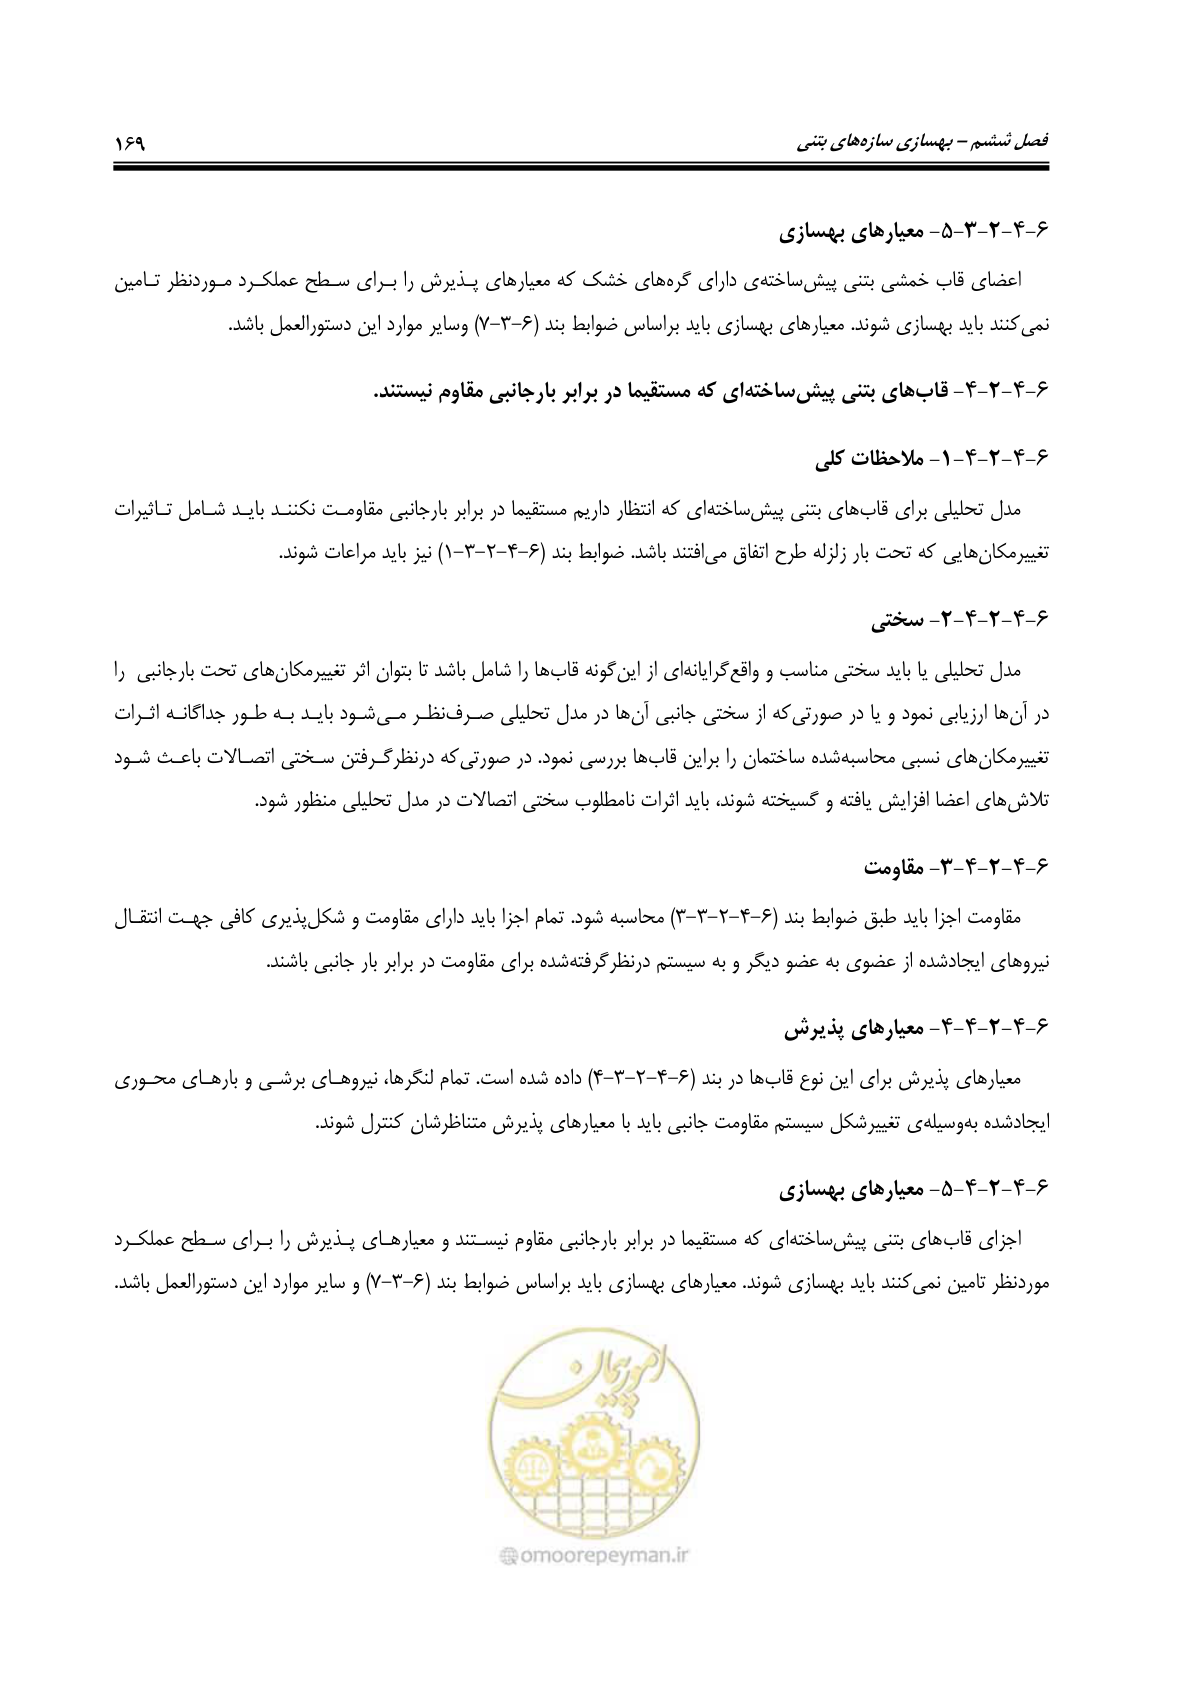 فصل ششم – بهسازی سازه‌های بتنی ۱۶۹
۶-۴-۲-۳-۵- معیارهای بهسازی
اعضای قاب خمشی بتنی پیش‌ساخته‌ی دارای گره‌های خشک که معیارهای پـذیرش را بـرای سـطح عملکـرد مـوردنظر تـامین
نمی‌کنند باید بهسازی شوند. معیارهای بهسازی باید براساس ضوابط بند (۶-۳-۷) وسایر موارد این دستورالعمل باشد.
۶-۴-۲-۴- قاب‌های بتنی پیش‌ساخته‌ای که مستقیما در برابر بارجانبی مقاوم نیستند.
۶-۴-۲-۴-۱- ملاحظات کلی
مدل تحلیلی برای قاب‌های بتنی پیش‌ساخته‌ای که انتظار داریم مستقیما در برابر بارجانبی مقاومـت نکننـد بایـد شـامل تـاثیرات
تغییرمکان‌هایی که تحت بار زلزله طرح اتفاق می‌افتند باشد. ضوابط بند (۶-۴-۲-۳-۱) نیز باید مراعات شوند.
۶-۴-۲-۴-۲- سختی
مدل تحلیلی یا باید سختی مناسب و واقع‌گرایانه‌ای از این‌گونه قاب‌ها را شامل باشد تا بتوان اثر تغییرمکان‌های تحت بارجانبی را
در آن‌ها ارزیابی نمود و یا در صورتی‌که از سختی جانبی آن‌ها در مدل تحلیلی صـرف‌نظـر مـی‌شـود بایـد بـه طـور جداگانـه اثـرات
تغییرمکان‌های نسبی محاسبه‌شده ساختمان را براین قاب‌ها بررسی نمود. در صورتی‌که درنظرگـرفتن سـختی اتصـالات باعـث شـود
تلاش‌های اعضا افزایش یافته و گسیخته شوند، باید اثرات نامطلوب سختی اتصالات در مدل تحلیلی منظور شود.
۶-۴-۲-۴-۳- مقاومت
مقاومت اجزا باید طبق ضوابط بند (۶-۴-۲-۳-۳) محاسبه شود. تمام اجزا باید دارای مقاومت و شکل‌پذیری کافی جهـت انتقـال
نیروهای ایجادشده از عضوی به عضو دیگر و به سیستم درنظرگرفته‌شده برای مقاومت در برابر بار جانبی باشند.
۶-۴-۲-۴-۴- معیارهای پذیرش
معیارهای پذیرش برای این نوع قاب‌ها در بند (۶-۴-۲-۳-۴) داده شده است. تمام لنگرها، نیروهـای برشـی و بارهـای محـوری
ایجادشده به‌وسیله‌ی تغییرشکل سیستم مقاومت جانبی باید با معیارهای پذیرش متناظرشان کنترل شوند.
۶-۴-۲-۴-۵- معیارهای بهسازی
اجزای قاب‌های بتنی پیش‌ساخته‌ای که مستقیما در برابر بارجانبی مقاوم نیسـتند و معیارهـای پـذیرش را بـرای سـطح عملکـرد
موردنظر تامین نمی‌کنند باید بهسازی شوند. معیارهای بهسازی باید براساس ضوابط بند (۶-۳-۷) و سایر موارد این دستورالعمل باشد.
امور پیمان
omoorepeyman.ir